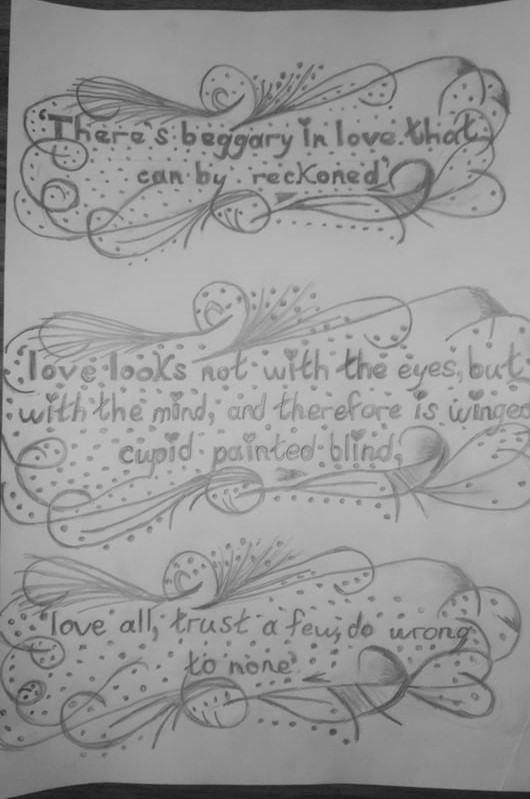 'There's beggary in love that
can by reckoned'
love looks not with the eyes, but
with the mind, and therefore is winged
cupid painted blind,
'love all, trust a few, do wrong
to none'